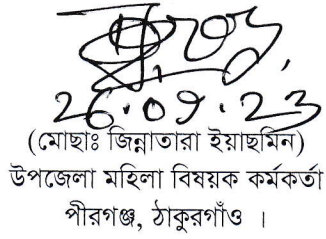 26.09.23
(মোছাঃ জিন্নাতারা ইয়াছমিন)
উপজেলা মহিলা বিষয়ক কর্মকর্তা
পীরগঞ্জ, ঠাকুরগাঁও ।